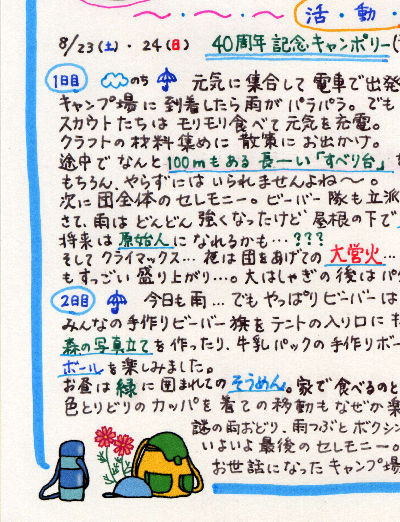 活・動・
8/23(土)・24(日) 40周年記念キャンポリー(
1日目 のち 元気に集合して電車で出発
キャンプ場に到着したら雨がパラパラ。でも
スカウトたちはモリモリ食べて元気を充電。
クラフトの材料集めに散策にお出かけ。
途中でなんと100mもある長ーい「すべり台」を
もちろん、やらずにはいられませんよね〜。
次に団全体のセレモニー。ビーバー隊も立派
さて、雨はどんどん強くなったけど屋根の下で
将来は原始人になれるかも…???
そしてクライマックス…夜は団をあげての大営火…
もすごい盛り上がり…。大はしゃぎの後はパタ
2日目 今日も雨…でもやっぱりビーバーは
みんなの手作りビーバー旗をテントの入り口に
森の写真立てを作ったり、牛乳パックの手作りボー
ボールを楽しみました。
お昼は緑に囲まれてのそうめん。家で食べるのと
色とりどりのカッパを着ての移動もなぜか楽
謎の雨おどり、雨つぶとボクシン
いよいよ最後のセレモニー。
お世話になったキャンプ場